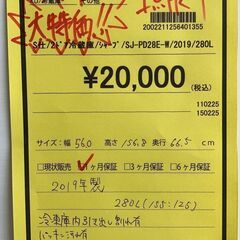 大特価!!!
2002211256401355
S社/2ドア冷蔵庫/シャープ/SJ-PD28E-W/2019/280L
¥20,000
(22,000)
110225
150225
サイズ:幅 56.0 高さ 156.8 奥行 66.5 cm
□現状販売 ☑1ヶ月保証 □3ヶ月保証 □6ヶ月保証
2019年製
280L(155:125)
冷蔵庫内引き出し割れ有
パッキン汚れ有